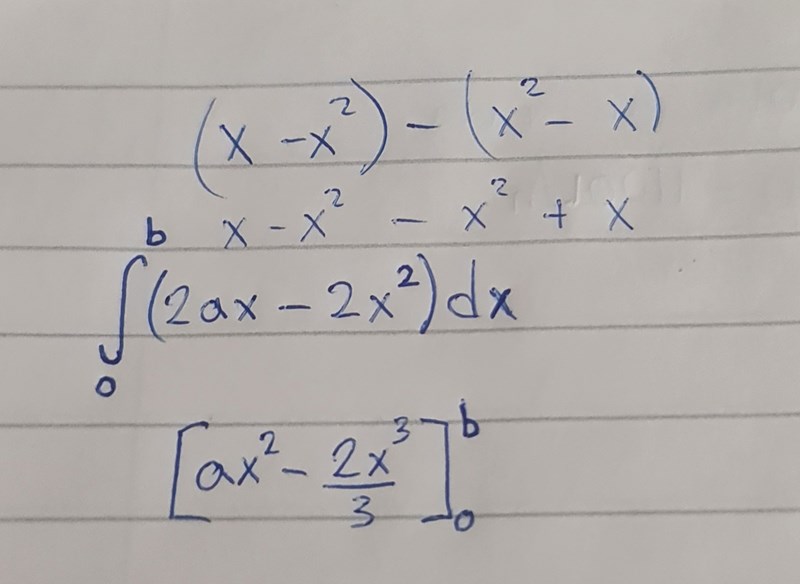 (x - x²) - (x² - x)
x - x² - x² + x
∫₀ᵇ (2ax - 2x²) dx
[ax² - 2x³/3]₀ᵇ